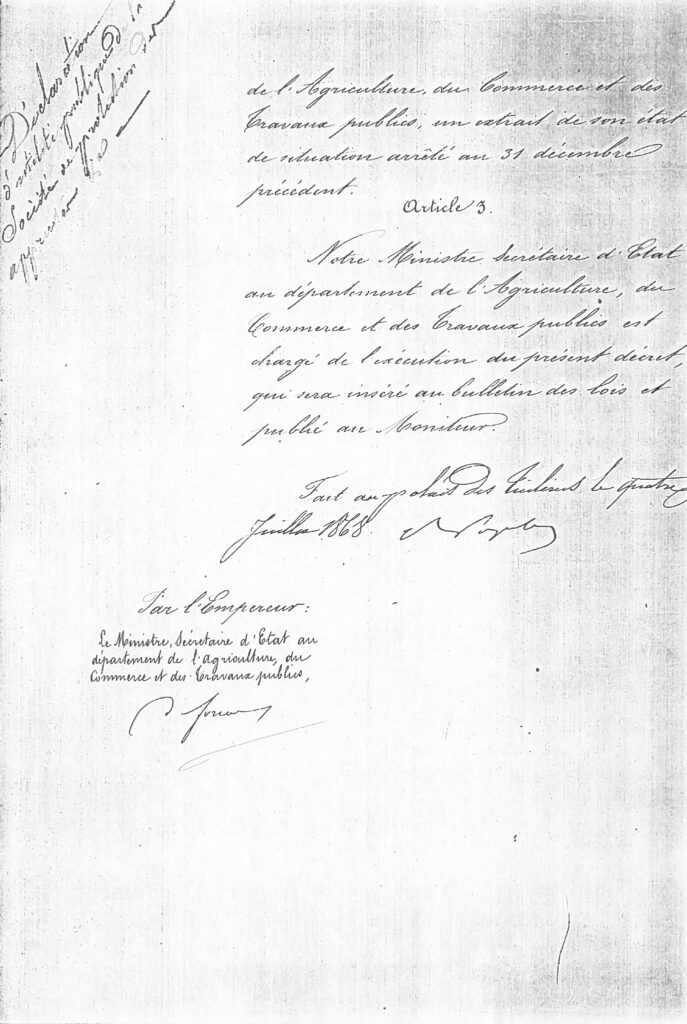 Déclaration
d'utilité publique de la
Société de protection des
de l'Agriculture, du Commerce et des
Travaux publics, un extrait de son état
de situation arrêté au 31 décembre
précédent.
Article 3.
Notre Ministre Secrétaire d'Etat
au département de l'Agriculture, du
Commerce et des Travaux publics est
chargé de l'exécution du présent décret,
qui sera inséré au bulletin des lois et
publié au Moniteur.
Fait au palais des Tuileries le quatre
Juillet 1868.
Par l'Empereur:
Le Ministre, Secrétaire d'Etat au
département de l'agriculture, du
Commerce et des Travaux publics,